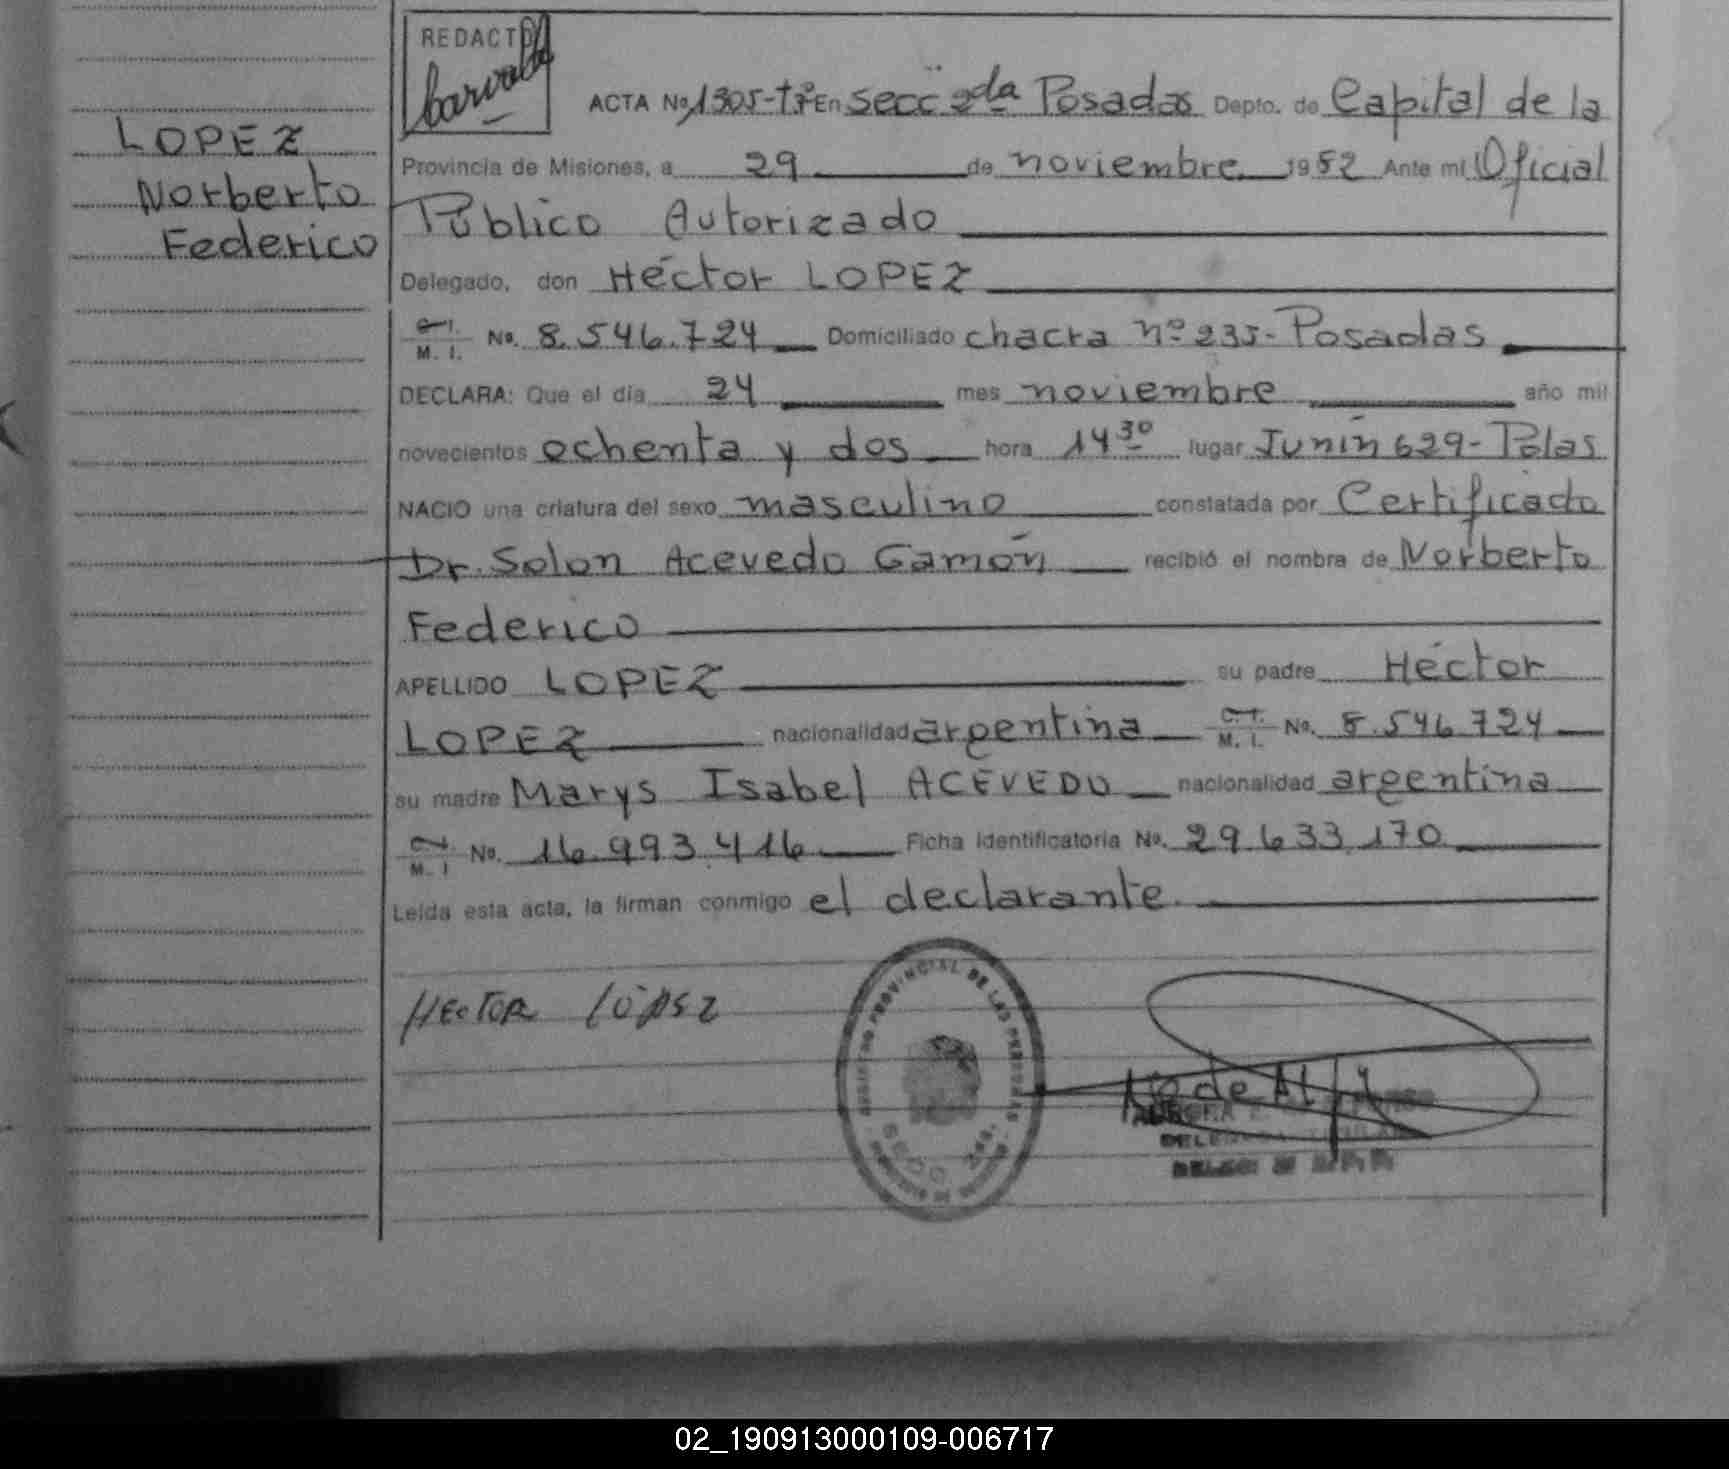 REDACTO
ACTA No 1305-tº En Secc 2da Posadas Depto. de Capital de la
LOPEZ
Norberto
Federico
Provincia de Misiones, a 29 de noviembre 1982 Ante mi Oficial
Público Autorizado
Delegado, don Héctor LOPEZ
C. I.
M. I. No. 8.546.724 Domiciliado chacra nº 235-Posadas
DECLARA: Que el día 24 mes noviembre año mil
novecientos ochenta y dos hora 14 30 lugar Junín 629-Pdas
NACIO una criatura del sexo masculino constatada por Certificado
Dr. Solon Acevedo Gamón recibió el nombre de Norberto
Federico
APELLIDO LOPEZ su padre Héctor
LOPEZ nacionalidad argentina C. I. M. I. No. 8.546.724
su madre Marys Isabel ACEVEDO nacionalidad argentina
C. I. M. I No. 16.993.416 Ficha Identificatoria No. 29.633.170
Leída esta acta, la firman conmigo el declarante.
HECTOR LÓPEZ
REGISTRO PROVINCIAL DE LAS PERSONAS
SECC 2da.
02_190913000109-006717